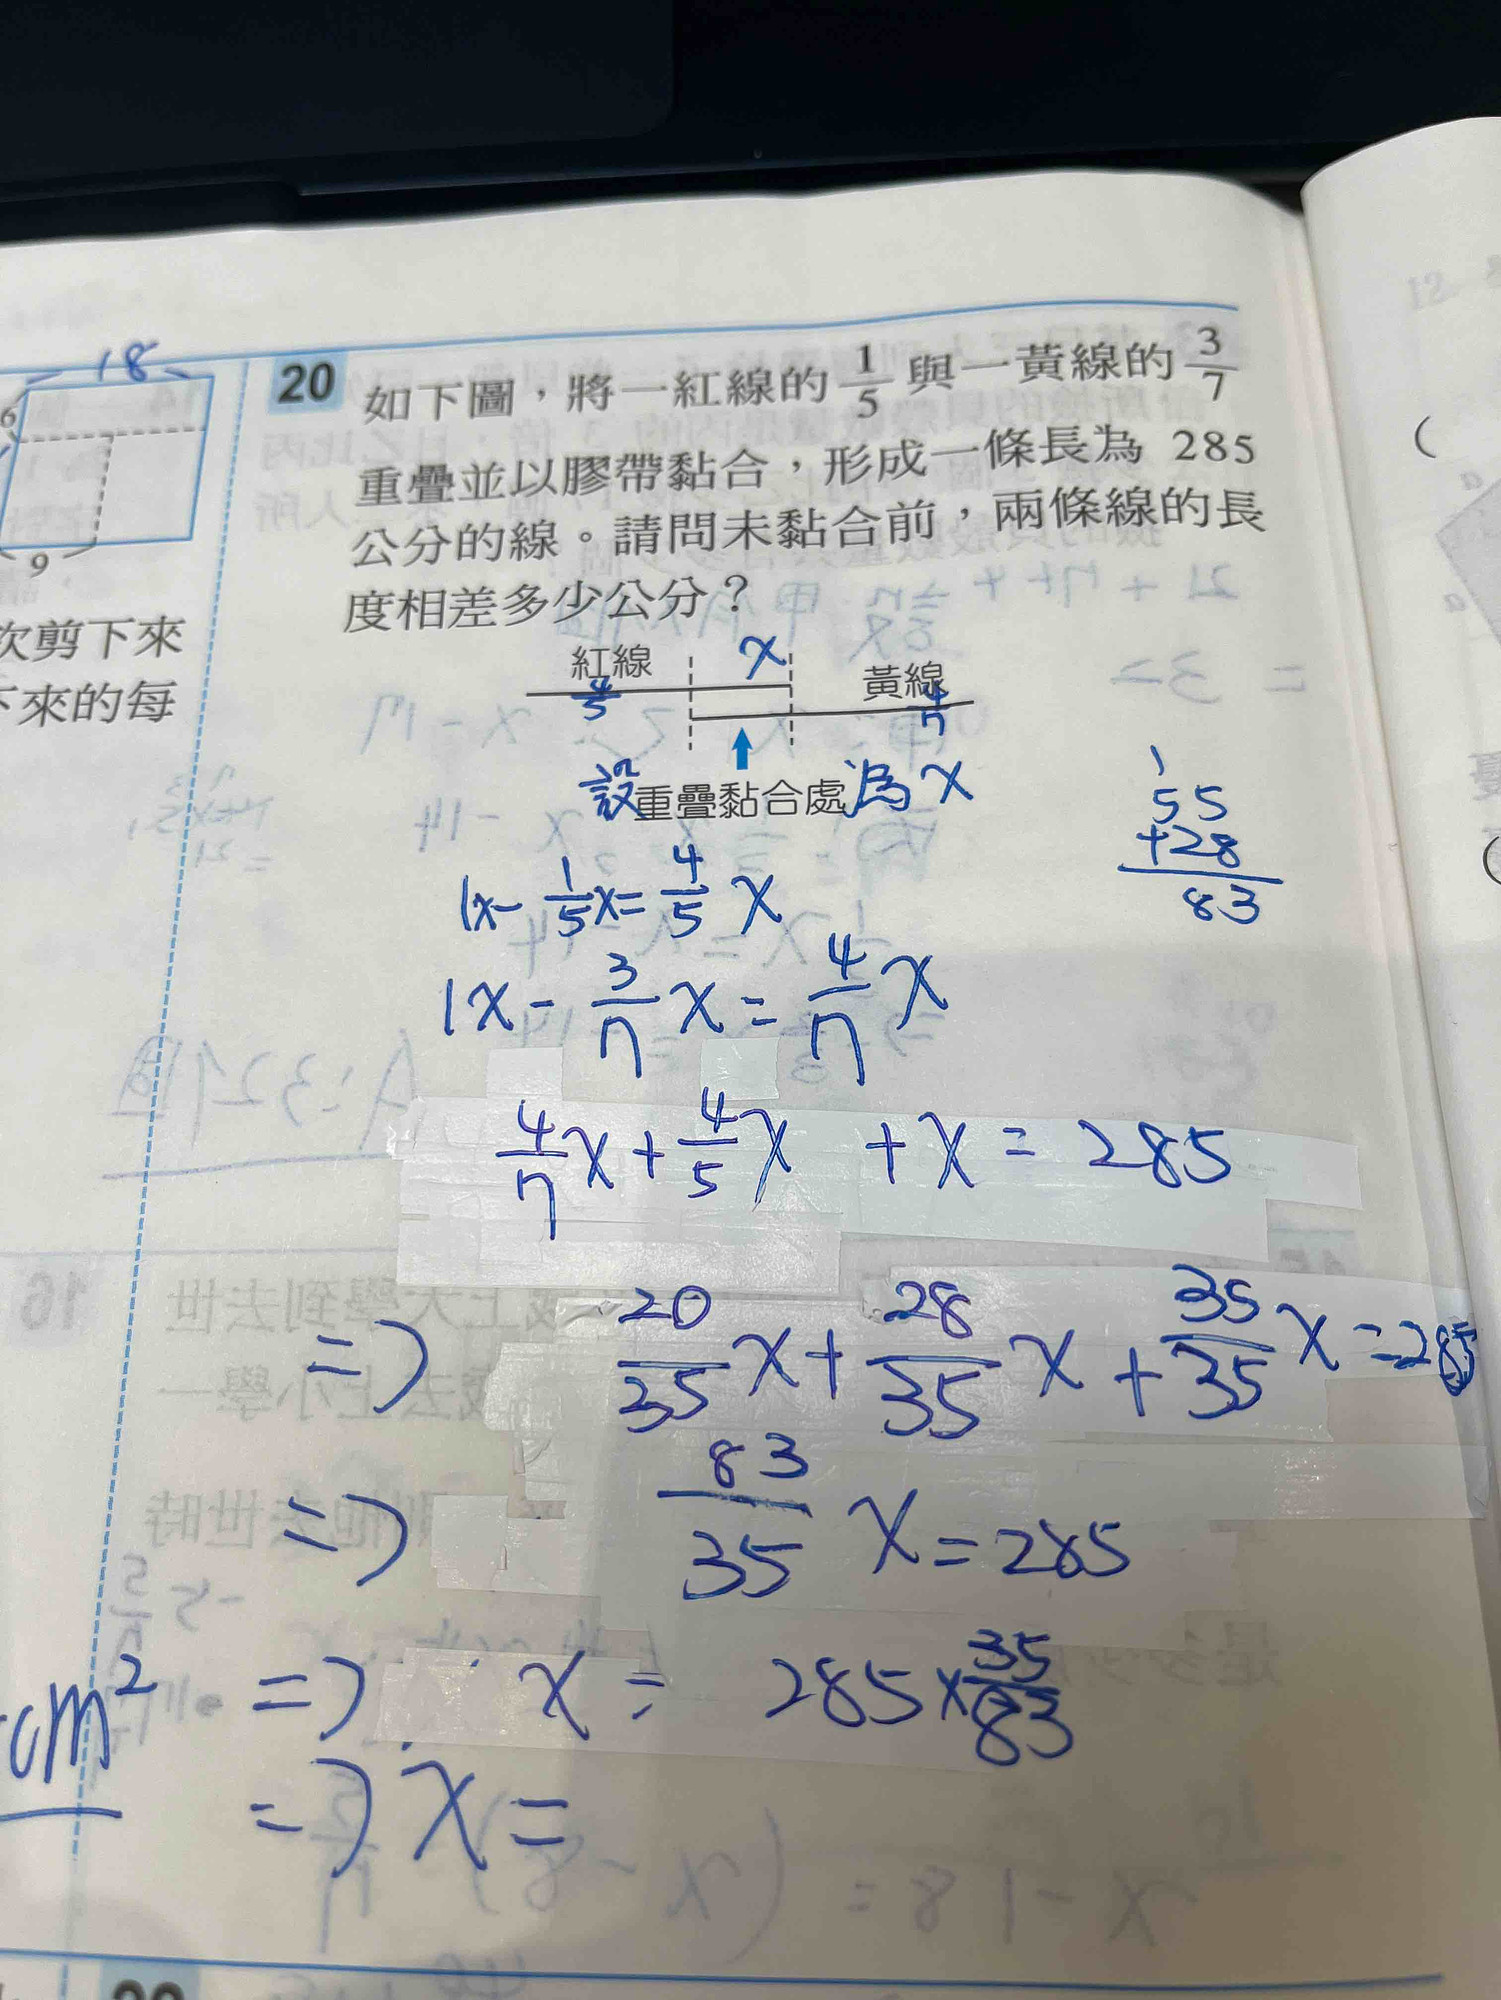 18
6
9
次剪下來
下來的每
cm²
20 如下圖，將一紅線的 1/5 與一黃線的 3/7
重疊並以膠帶黏合，形成一條長為 285
公分的線。請問未黏合前，兩條線的長
度相差多少公分？
紅線 x 黃線
4/5 4/7
設重疊黏合處為x
1
55
+28
83
1x - 1/5 x = 4/5 x
1x - 3/7 x = 4/7 x
4/7 x + 4/5 x + x = 285
=> 20/35 x + 28/35 x + 35/35 x = 285
=> 83/35 x = 285
=> x = 285 × 35/83
=> x =